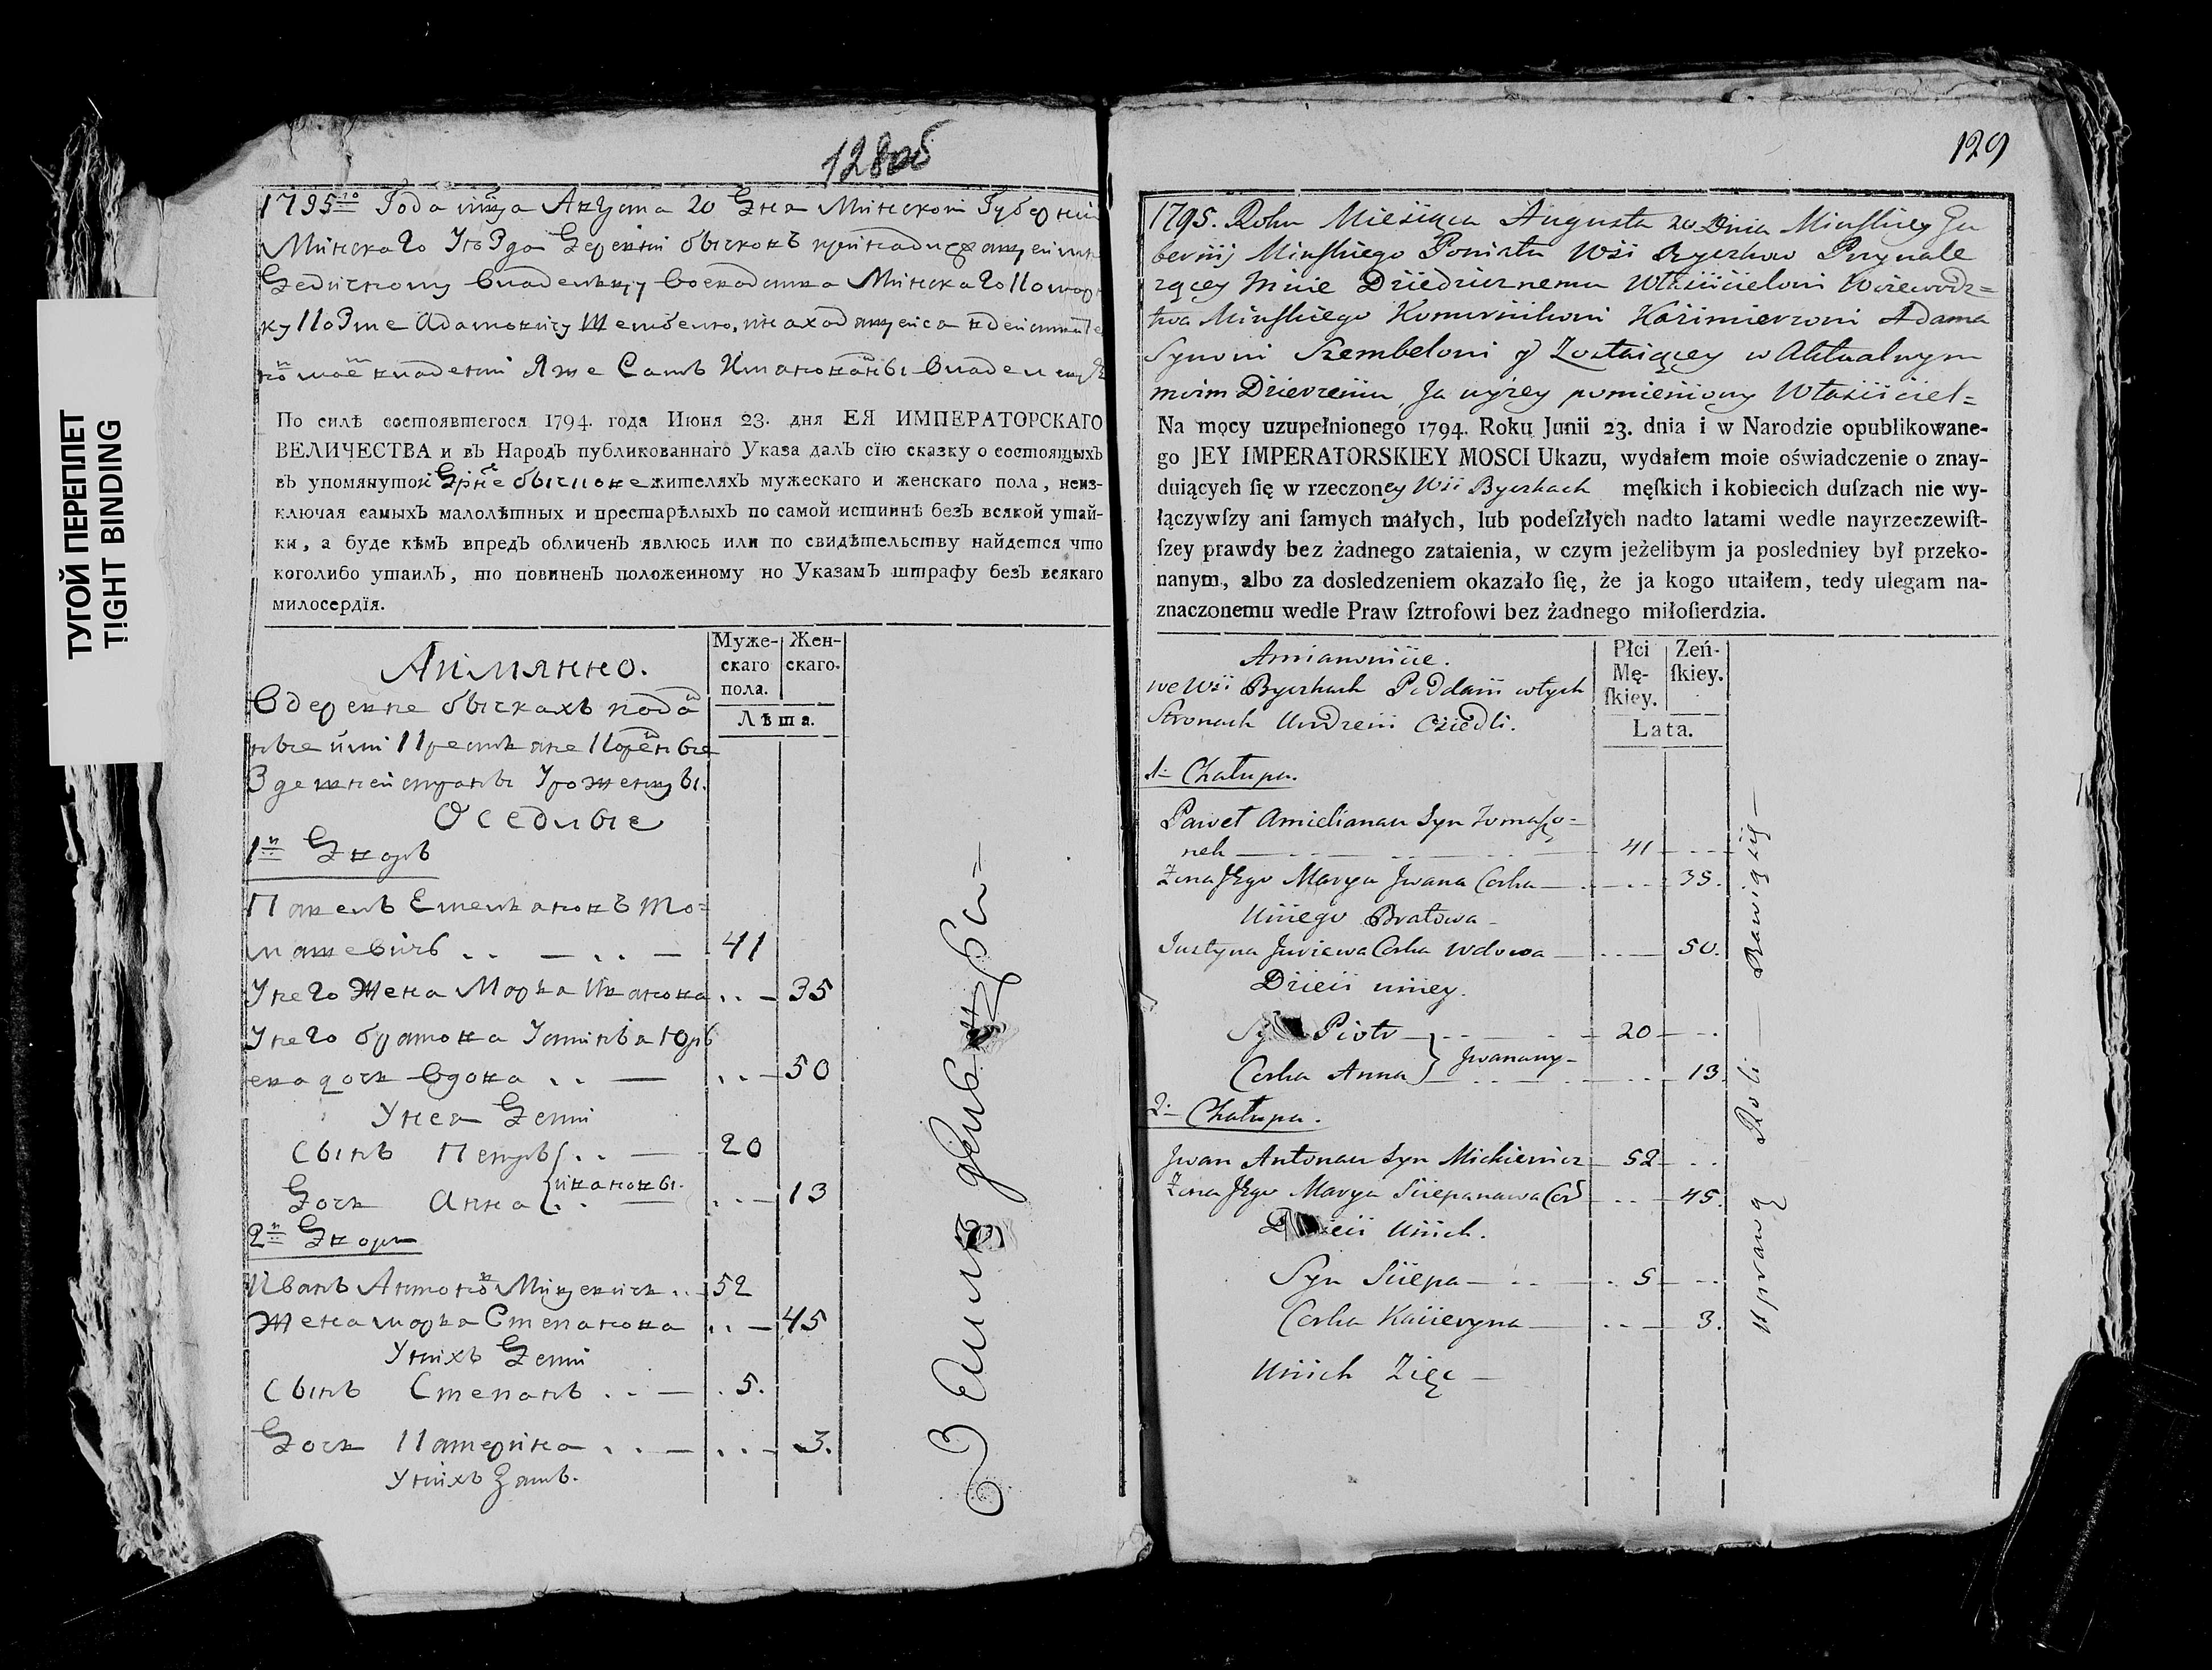 ТУГОЙ ПЕРЕПЛЕТ
TIGHT BINDING
128об
1795го Года мца Августа 20 Дня Минской Губернии
Минскаго Уезда Деревни бычковъ принадлежащей мне
Дедичному владельцу воеводства Минскаго
Адамовичу Шембелю, находящуеися
владении Я же Самъ владелецъ
По силѣ состоявшегося 1794. года Июня 23. дня ЕЯ ИМПЕРАТОРСКАГО
ВЕЛИЧЕСТВА и въ Народъ публикованнаго Указа далъ сїю сказку о состоящыхъ
въ упомянутой Дрне бычкове жителяхъ мужескаго и женскаго пола, неиз-
ключая самыхъ малолѣтных и престарѣлыхъ по самой истиннѣ безъ всякой утай-
ки, а буде кѣмъ впредъ обличенъ явлюсь или по свидѣтельству найдется что
коголибо утаилъ, то повиненъ положенному по Указамъ штрафу безъ всякаго
милосердїя.
Аимянно.
Муже-
скаго
пола.
Жен-
скаго.
Лѣта.
В деревне бычкахъ
Здешней страны Уроженцы.
Оседлые
1й Дворъ
Павелъ Емельяновъ То=
машевичъ .. — .. — 41
У него Жена Марья Иванова .. — 35
У него братова Юрь
ева дочь вдова .. — .. — 50
У нея Дети
Сынъ Петръ .. — 20
Дочь Анна ивановы. .. — 13
2й Дворъ
Иванъ Антоновъ Мицкевичь .. 52
Жена марья Степанова .. — 45
У нихъ Дети
Сынъ Степанъ .. — . 5.
Дочь Катерина .. — .. — 3.
У нихъ Зять.
129
1795. Roku Miesiąca Augusta 20 Dnia Minskiey Gu
bernij Minskiego Powiatu Wsi Byczkow Przynale
zącey Mnie Dziedzicznemu Włascicielowi Woiewodz=
twa Minskiego Komornikowi Kazimierzowi Adama
Synowi Szembelowi y Zostaiącey w Aktualnym
moim Dzierzeniu, Ja wyzey pomieniony Własciciel=
Na mocy uzupełnionego 1794. Roku Junii 23. dnia i w Narodzie opublikowane-
go JEY IMPERATORSKIEY MOSCI Ukazu, wydałem moie oświadczenie o znay-
duiących ſię w rzeczoney Wsi Byczkach męſkich i kobiecich duſzach nie wy-
łączywſzy ani ſamych małych, lub podeſzłych nadto latami wedle nayrzeczewiſt-
ſzey prawdy bez żadnego zataienia, w czym jeżelibym ja posledniey był przeko-
nanym, albo za dosledzeniem okazało ſię, że ja kogo utaiłem, tedy ulegam na-
znaczonemu wedle Praw ſztrofowi bez żadnego miłoſierdzia.
Amianowicie.
we Wsi Byczkach Poddani w tych
Stronach Urodzeni Osiedli.
Płci
Mę-
ſkiey.
Zeń-
ſkiey.
Lata.
1. Chałupa.
Paweł Amielianau Syn Tomaszo=
nek — 41
Zona Jego Marya Jwana Corka — 35.
U niego Bratowa —
Justyna Juriewa Corka Wdowa — 50.
Dzieci u niey.
Syn Piotr — 20
Corka Anna } Jwanawy — 13
2. Chałupa.
Jwan Antonau Syn Mickiewicz — 52
Zona Jego Marya Sciepanawa Cor — 45.
Dzieci u nich.
Syn Sciepa — 5
Corka Kacieryna — 3.
U nich Zięc —
Uprawą Roli — Bawią się —